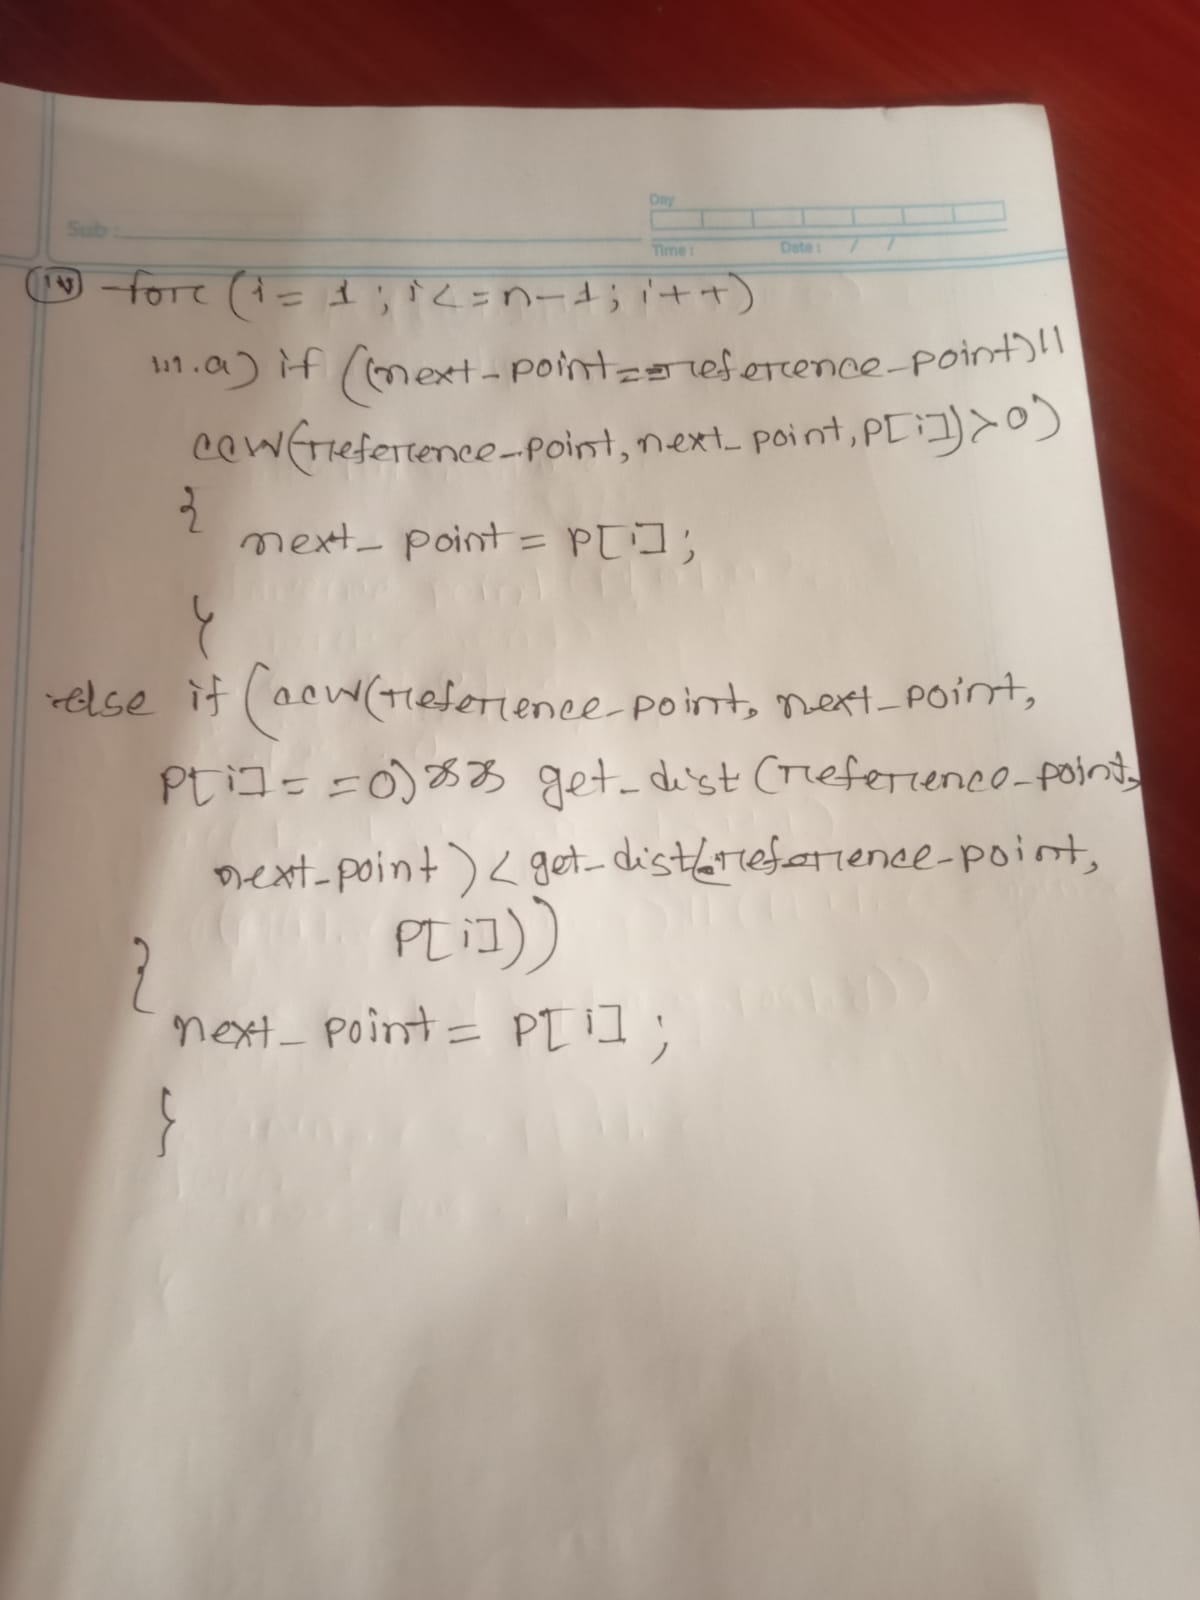 Day
Sub:
Time: Date: / /
(iv) for (i = 1; i <= n-1; i++)
iii.a) if ((next_point == reference_point) ||
ccw(reference_point, next_point, P[i]) > 0)
{
next_point = P[i];
}
else if (ccw(reference_point, next_point,
P[i] == 0) && get_dist (reference_point,
next_point) < get_dist(reference_point,
P[i]))
{
next_point = P[i];
}